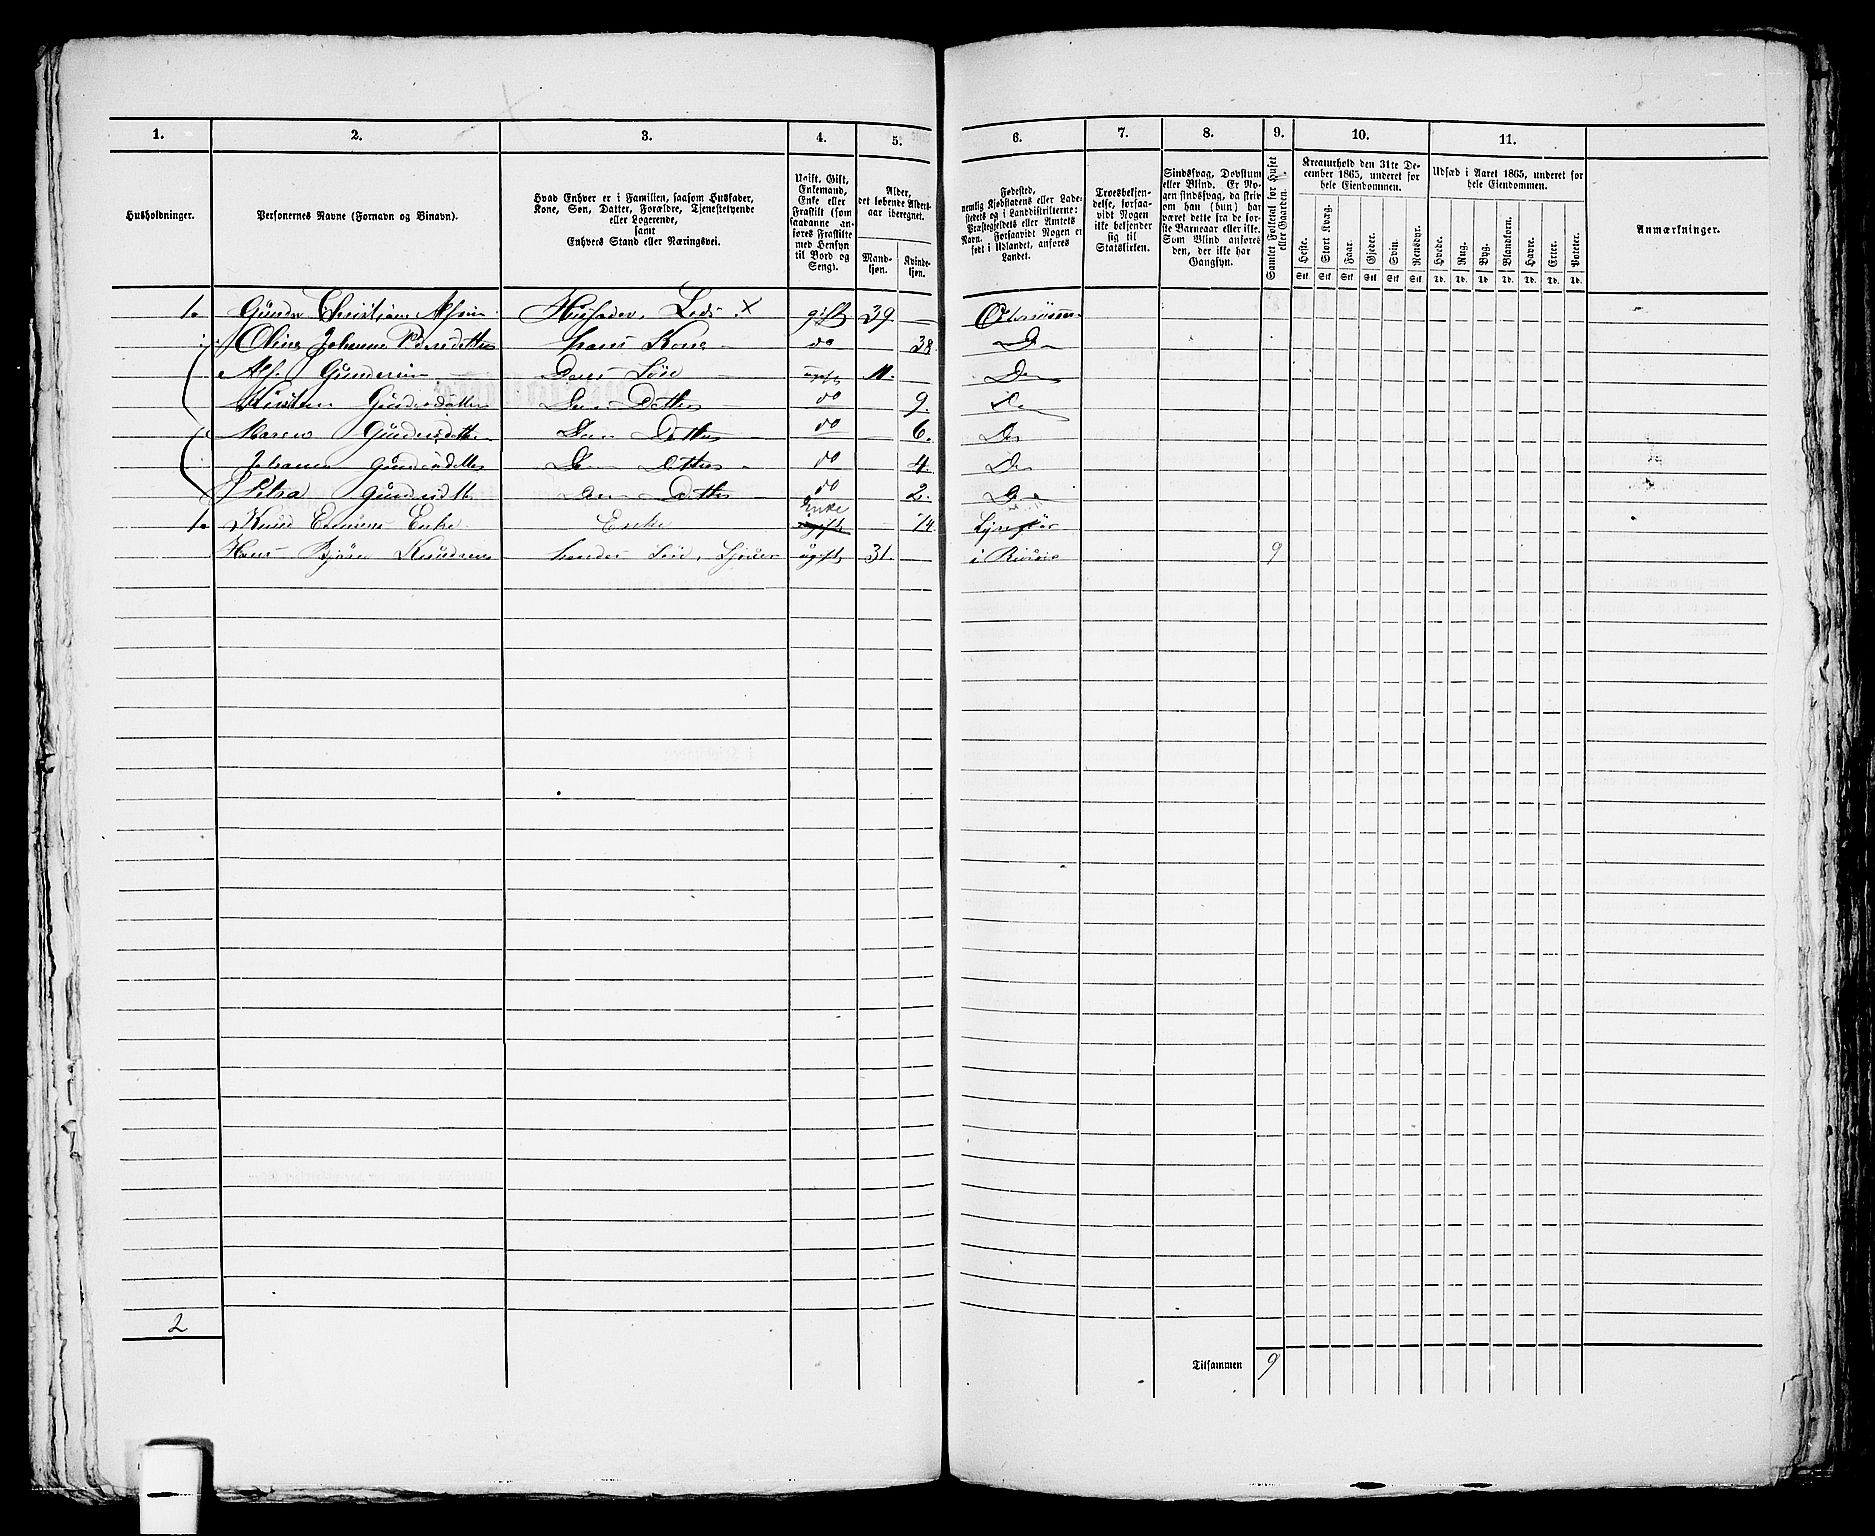 1. 2. 3. 4. 5. 6. 7. 8. 9. 10. 11.
Husholdninger.
Personernes Navne (Fornavn og Binavn).
Hvad Enhver er i Familien, saasom Husfader,
Kone, Søn, Datter, Forældre, Tjenestetyende
eller Logerende,
samt
Enhvers Stand eller Næringsvei.
Ugift, Gift,
Enkemand,
Enke eller
Fraskilt (som
saadanne an-
føres Fraskilte
med Hensyn
til Bord og
Seng).
Alder,
det løbende Alders-
aar iberegnet.
Mand-
kjøn.
Kvinde-
kjøn.
Fødested,
nemlig Kjøbstadens eller Lade-
stedets og i Landdistrikterne:
Præstegjeldets eller Amtets
Navn. Forsaavidt Nogen er
født i Udlandet, anføres
Landet.
Troesbekjen-
delse, forsaa-
vidt Nogen
ikke bekjender
sig til
Statskirken.
Sindssvag, Døvstum
eller Blind. Er No-
gen sindssvag, da skriv
om han (hun) har
været dette fra de før-
ste Barneaar eller ikke.
Som Blind anføres
den, der ikke har
Gangsyn.
Samlet Folketal for Huset
eller Gaarden.
Kreaturhold den 31te De-
cember 1865, underet for
hele Eiendommen.
Heste. Stort Kvæg. Faar. Gjeder. Svin. Rensdyr.
Stk. Stk. Stk. Stk. Stk. Stk.
Udsæd i Aaret 1865, underet for
hele Eiendommen.
Hvede. Rug. Byg. Blandkorn. Havre. Erter. Poteter.
Td. Td. Td. Td. Td. Td. Td.
Anmærkninger.
1. Christian Husfader, Lods X gift 39.
Oline Johanne hans Kone do 38 Do
Gundersen Deres Søn ugift 11. Do
Kirsten Gundersdatter Do Datter do 9. Do
Maren Gundersdatter Do Datter do 6. Do
Johanne Gundersdatter Do Datter do 4. Do
Gundersdtt Do Datter do 2. Do
1. Knud Enke Enke Enke ugift 74
Hans Knudsen hendes Søn, ugift 31. i 9
2
Tilsammen 9